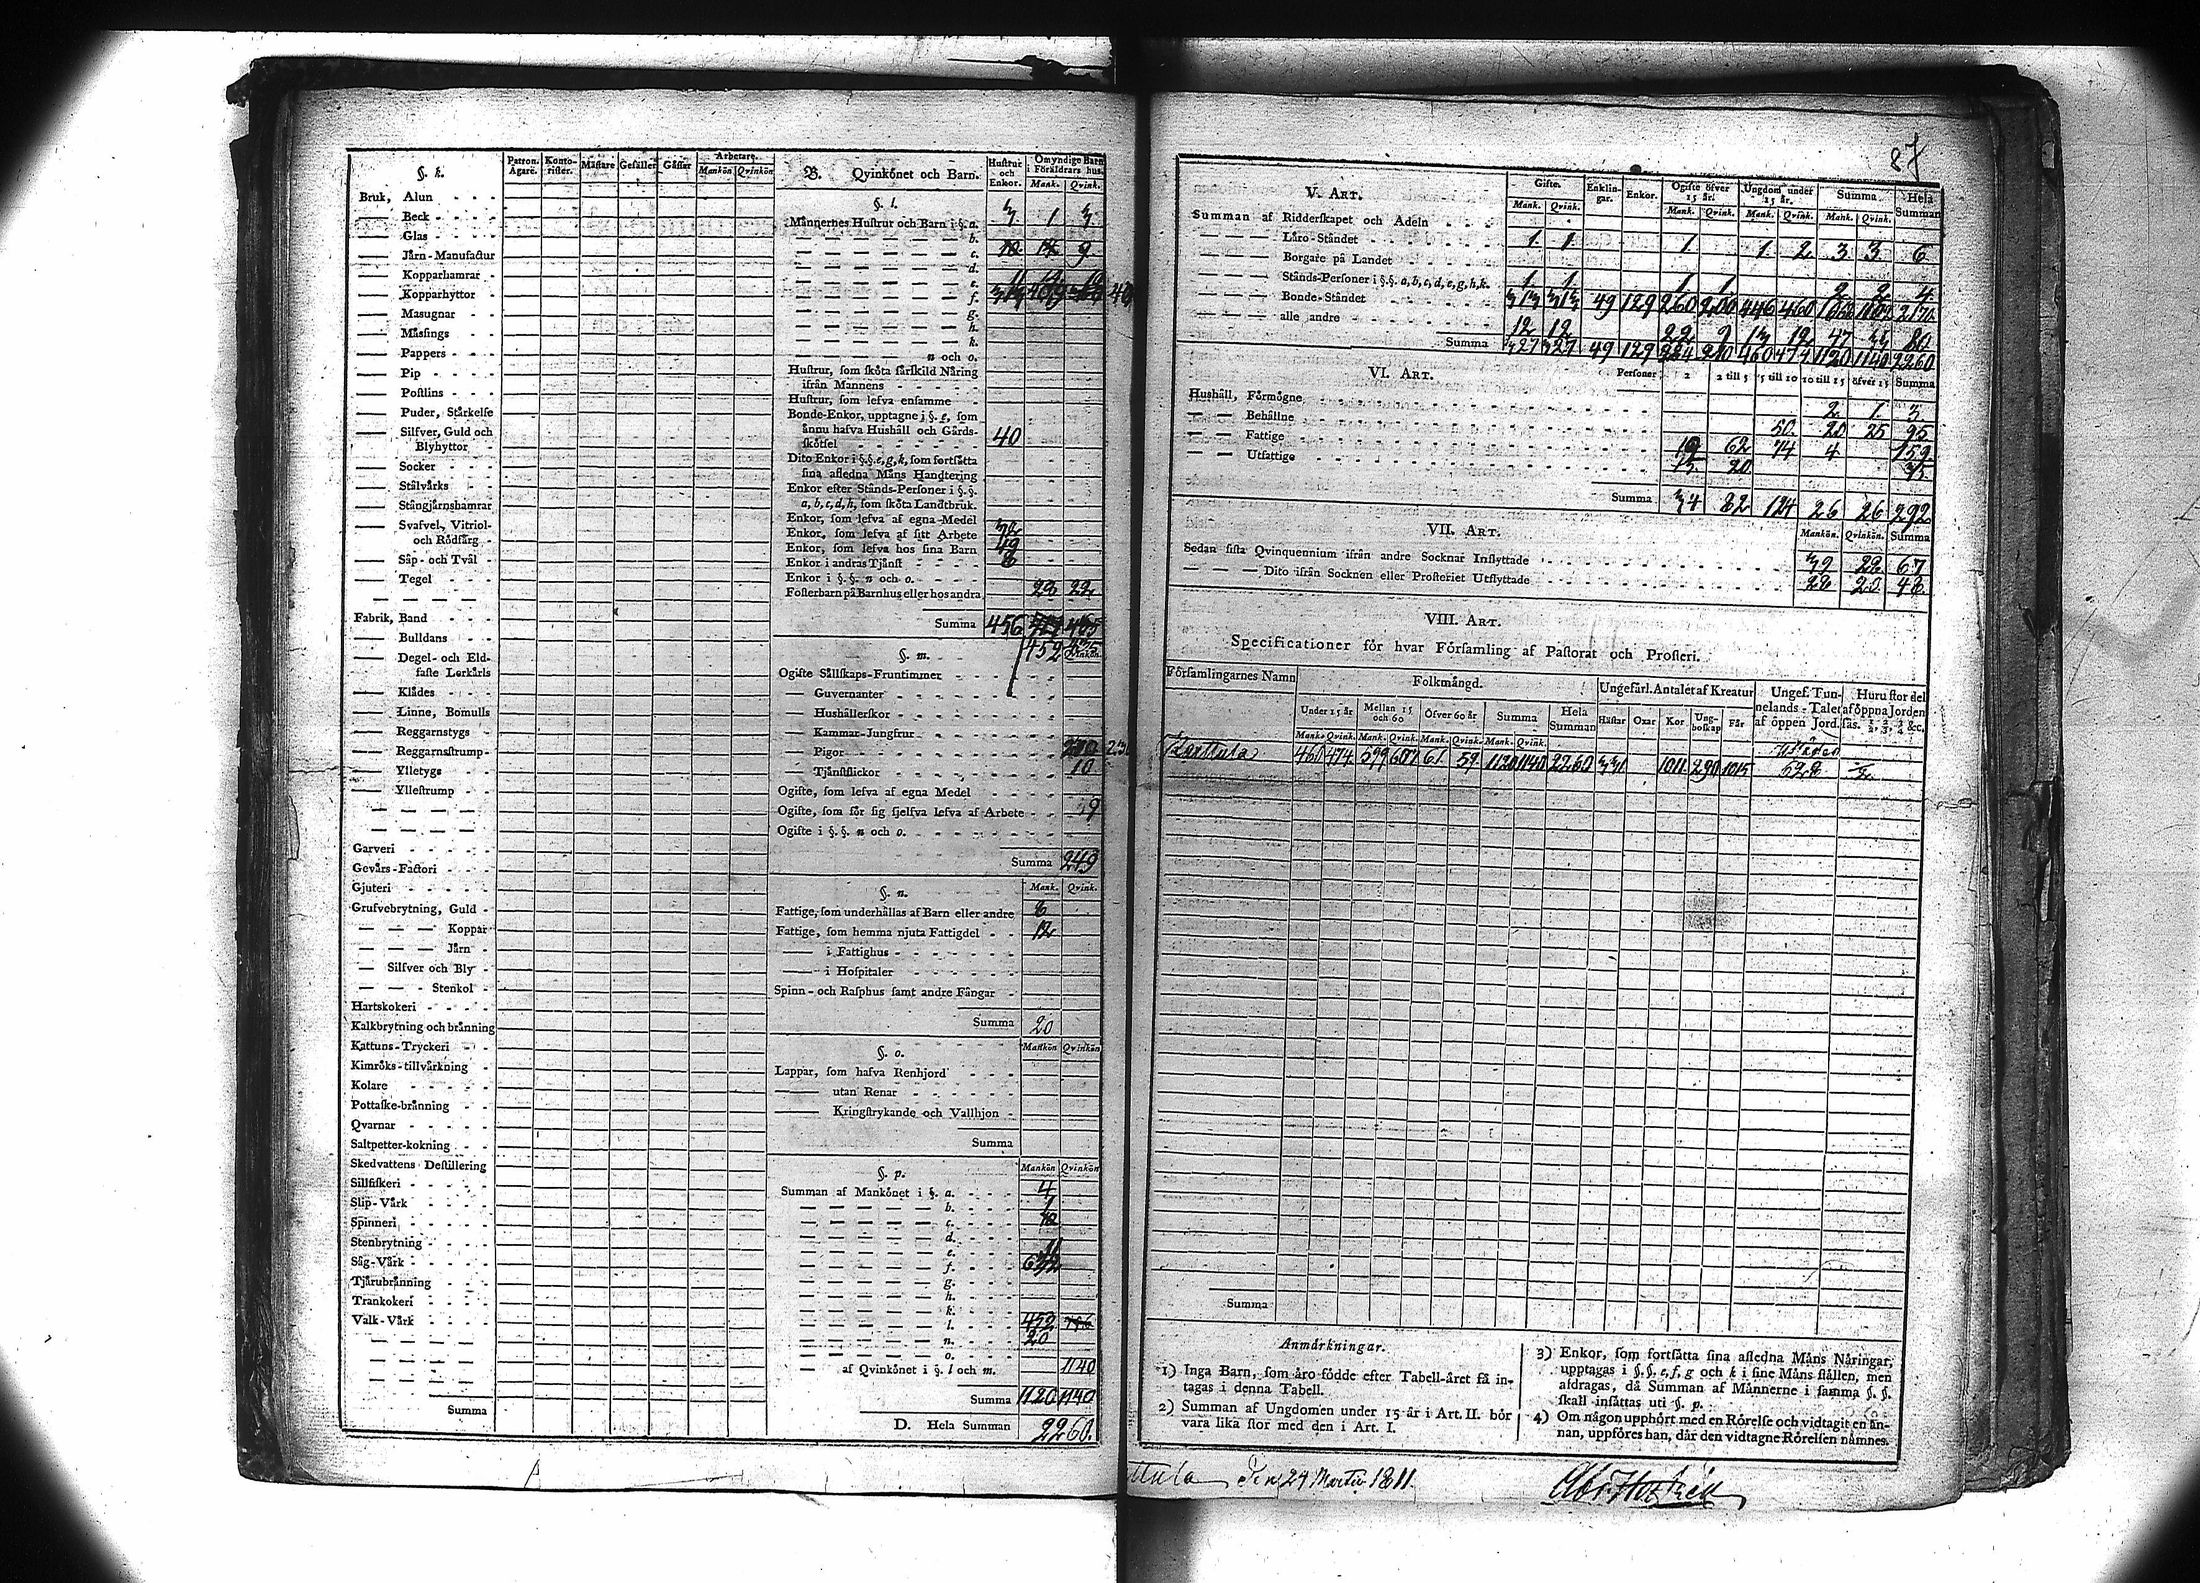 87
§. k.
Patron. Ägare. Konto-rister. Mästare Gesäller Gåsser Arbetare. Mankön Qvinkön
Bruk, Alun
Beck
Glas
Järn-Manufactur
Kopparhamrar
Kopparhyttor
Masugnar
Måsings
Pappers
Pip
Postlins
Puder, Stårkelse
Silfver, Guld och
Blyhyttor
Socker
Stålvårks
Stångjårnshamrar
Svafvel, Vitriol-
och Rödfårg
Såp- och Tvål
Tegel
Fabrik, Band
Bulldans
Degel- och Eld-
faste Lerkårls
Klådes
Linne, Bomulls
Reggarnstygs
Reggarnsstrump
Ylletygs
Yllestrump
Garveri
Gevårs-Factori
Gjuteri
Grufvebrytning, Guld
Koppar
Jårn
Silfver och Bly
Stenkol
Hartskokeri
Kalkbrytning och brånning
Kattuns-Tryckeri
Kimröks-tillvårkning
Kolare
Pottaske-brånning
Qvarnar
Saltpetter-kokning
Skedvattens Destillering
Sillfiskeri
Slip-Vårk
Spinneri
Stenbrytning
Såg-Vårk
Tjårubrånning
Trankokeri
Valk-Vårk
Summa
B. Qvinkönet och Barn.
Hustrur och Enkor. Omyndige Barn i Föräldrars hus. Mank. Qvink.
§. l.
Månnernes Hustrur och Barn i §. a. 3 1 3
b.
c. 9
d.
e.
f. 40
g.
h.
k.
n och o.
Hustrur, som sköta sårskild Nåring
ifrån Mannens
Hustrur, som lefva ensamme
Bonde-Enkor, upptagne i §. f, som
ånnu hafva Hushåll och Gårds-
skötsel 40
Dito Enkor i §.§. e, g, k, som fortsåtta
sina afledna Måns Handtering
Enkor efter Stånds-Personer i §.§.
a, b, c, d, h, som sköta Landtbruk.
Enkor, som lefva af egna Medel
Enkor, som lefva af sitt Arbete 32
Enkor, som lefva hos sina Barn 49
Enkor i andras Tjånst 8
Enkor i §.§. n och o.
Fosterbarn på Barnhus eller hos andra 23 22
Summa 456
452
§. m. Qvinkön
Ogifte Sållskaps-Fruntimmer
Guvernanter
Hushållerskor
Kammar-Jungfrur
Pigor 230
Tjånstflickor 10
Ogifte, som lefva af egna Medel
Ogifte, som för sig sjelfva lefva af Arbete 9
Ogifte i §.§. n och o.
Summa 249
§. n. Mank. Qvink.
Fattige, som underhållas af Barn eller andre 8
Fattige, som hemma njuta Fattigdel 12
i Fattighus
i Hospitaler
Spinn- och Rasphus samt andre Fångar
Summa 20
§. o. Mankön Qvinkön
Lappar, som hafva Renhjord
utan Renar
Kringstrykande och Vallhjon
Summa
§. p. Mankön Qvinkön
Summan af Mankönet i §. a. 4
b. 1
c.
d.
e. 11
f. 632
g.
h.
k.
l. 452
n. 20
o.
af Qvinkönet i §. l och m. 1140
Summa 1120 1140
D. Hela Summan 2260.
V. ART.
Gifte. Mank. Qvink. Enklin-gar. Enkor. Ogifte öfver 15 år. Mank. Qvink. Ungdom under 15 år. Mank. Qvink. Summa. Mank. Qvink. Hela Summan
Summan af Ridderskapet och Adeln
Låro-Ståndet 1. 1. 1. 1. 2 3. 3. 6
Borgare på Landet
Stånds-Personer i §.§. a, b, c, d, e, g, h, k. 1. 1. 1. 1. 2 2 4
Bonde-Ståndet 313 313 49 129 260 200 446 460 2170
alle andre 12 12 22 9 13 12 47 33 80
Summa 327 327 49 129 284 210 460 474 1120 1140 2260
VI. ART. Personer 2 2 till 5 5 till 10 10 till 15 öfver 15 Summa
Hushåll, Förmögne 2 1. 3
Behållne 50 20 25 95
Fattige 19 62 74 4 159
Utfattige 15 20 35
Summa 34 82 124 26 26 292
VII. ART. Mankön. Qvinkön. Summa
Sedan sista Qvinquennium ifrån andre Socknar Inflyttade 39 28 67
Dito ifrån Socknen eller Prosteriet Utflyttade 28 20 48
VIII. ART.
Specificationer för hvar Församling af Pastorat och Prosteri.
Församlingarnes Namn Folkmångd. Ungefårl. Antalet af Kreatur Ungef. Tun-nelands-Talet af öppen Jord. Huru stor del af öppna Jorden sås. 1/2, 2/3, 3/4 &c.
Under 15 år Mellan 15 och 60 Öfver 60 år Summa Hela Summan Håstar Oxar Kor Ung-boskap Får
Mank. Qvink. Mank. Qvink. Mank. Qvink. Mank. Qvink.
Karttula 460 474 599 607 61 59 1120 1140 2260 331 1011 290 1015 528 1/2
Summa
Anmårkningar.
1) Inga Barn, som åro födde efter Tabell-året få in-
tagas i denna Tabell.
2) Summan af Ungdomen under 15 år i Art. II. bör
vara lika stor med den i Art. I.
3) Enkor, som fortsåtta sina afledna Måns Nåringar,
upptagas i §.§. e, f, g och k i sine Måns stållen, men
afdragas, då Summan af Månnerne i samma §.§.
skall insåttas uti §. p.
4) Om någon upphört med en Rörelse och vidtagit en an-
nan, uppföres han, där den vidtagne Rörelsen nåmnes.
ttula Den 24 Martii 1811.